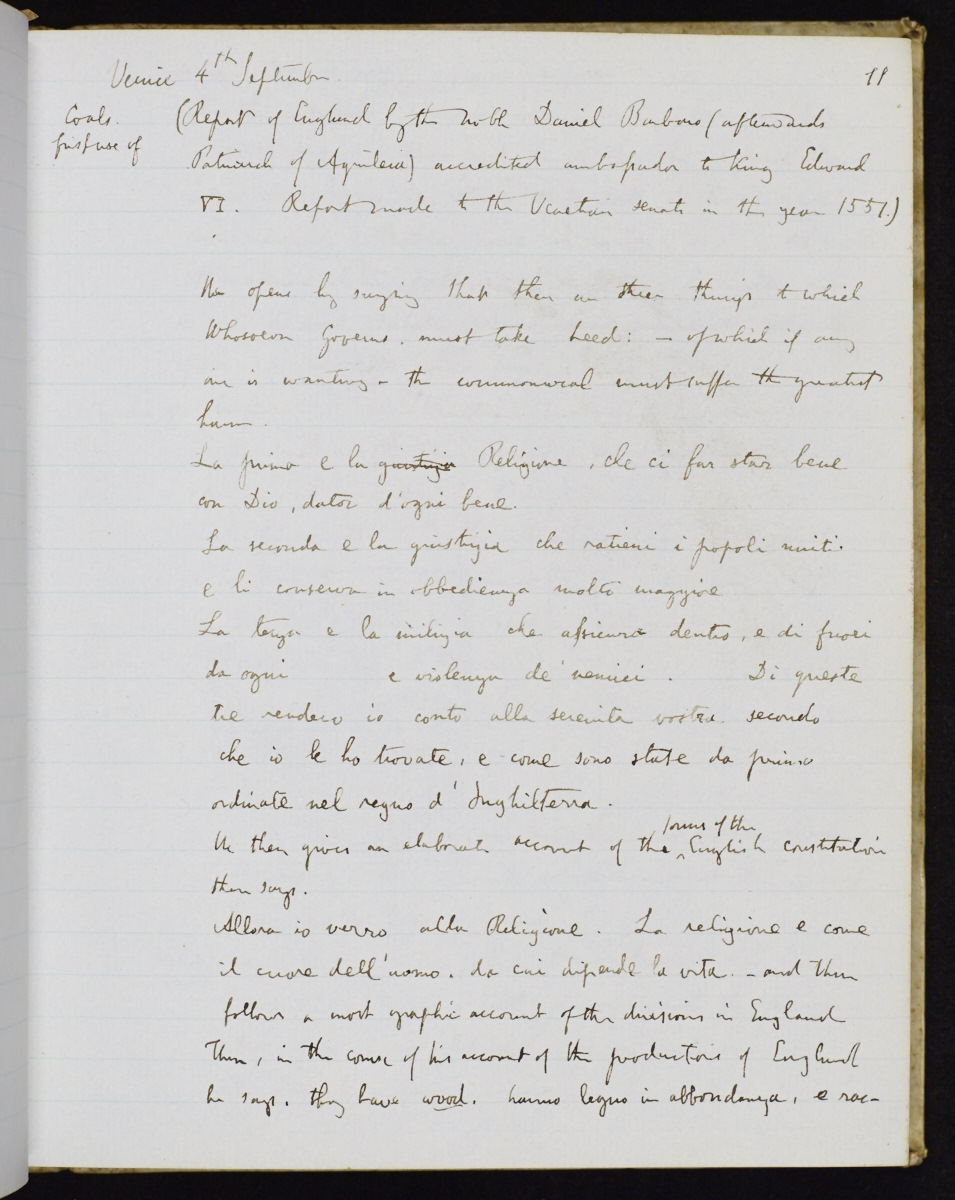 Venice 4th September.
11
Coals.
first use of
(Report of England by the noble Daniel Barbaro (afterwards
Patriarch of Aquileia) accredited ambassador to King Edward
VI. Report made to the Venetian senate in the year 1551.)
He opens by saying that there are three things to which
Whosoever Governs. must take heed: – of which if any
one is wanting – the commonweal must suffer the greatest
harm.
La prima e la giustizia Religione, che ci far star bene
con Dio, dator d'ogni bene.
La seconda e la giustizia che ratieni i popoli uniti.
e li conserva in obbedienza molto maggiore
La terza e la milizia che assicura dentro, e di fuori
da ogni e violenza de' nemici. Di queste
tre rendero io conto alla serenita vostra. secondo
che io le ho trovate, e come sono state da prima
ordinate nel regno d' Inghilterra.
forms of the
He then gives an elaborate account of the English constitution
then says.
Allora io verro alla Religione. La religione e come
il cuore dell'uomo. da cui dipende la vita. – and then
follows a most graphic account of the divisions in England
Then, in the course of his account of the productions of England
he says. they have wood. hanno legno in abbondanza, e rac-